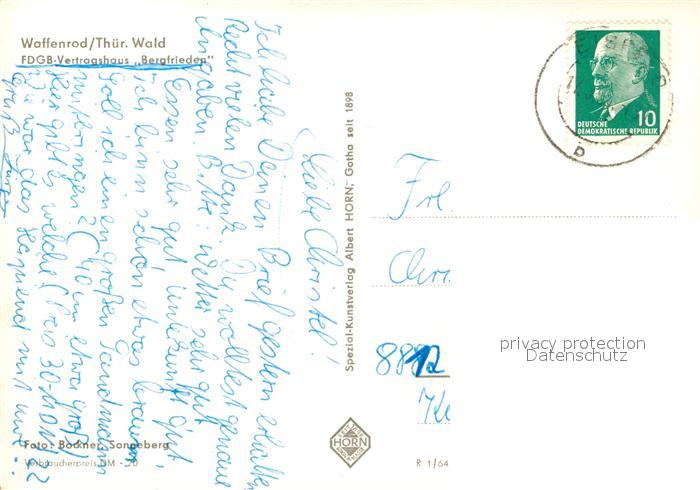 Waffenrod/Thür. Wald
FDGB-Vertragshaus „Bergfrieden"
Liebe Christel!
Ich habe Deinen Brief gestern erhalten
Recht vielen Dank. Du wolltest genaue
Angaben. Bitte: Wetter sehr gut
Essen sehr gut Unterkunft gut,
ich bin schon etwas braun
Soll ich einen großen Sandmann
mitbringen? (40 cm etwa groß)
Hier gibt es welche (Preis 30-
Wie war das
Gruß
Foto: Böckner, Sonneberg
Verbraucherpreis DM -,20
Spezial-Kunstverlag Albert HORN, Gotha seit 1898
HORN
R 1/64
DEUTSCHE
DEMOKRATISCHE REPUBLIK
10
b
Frl.
Chri
8812
privacy protection
Datenschutz